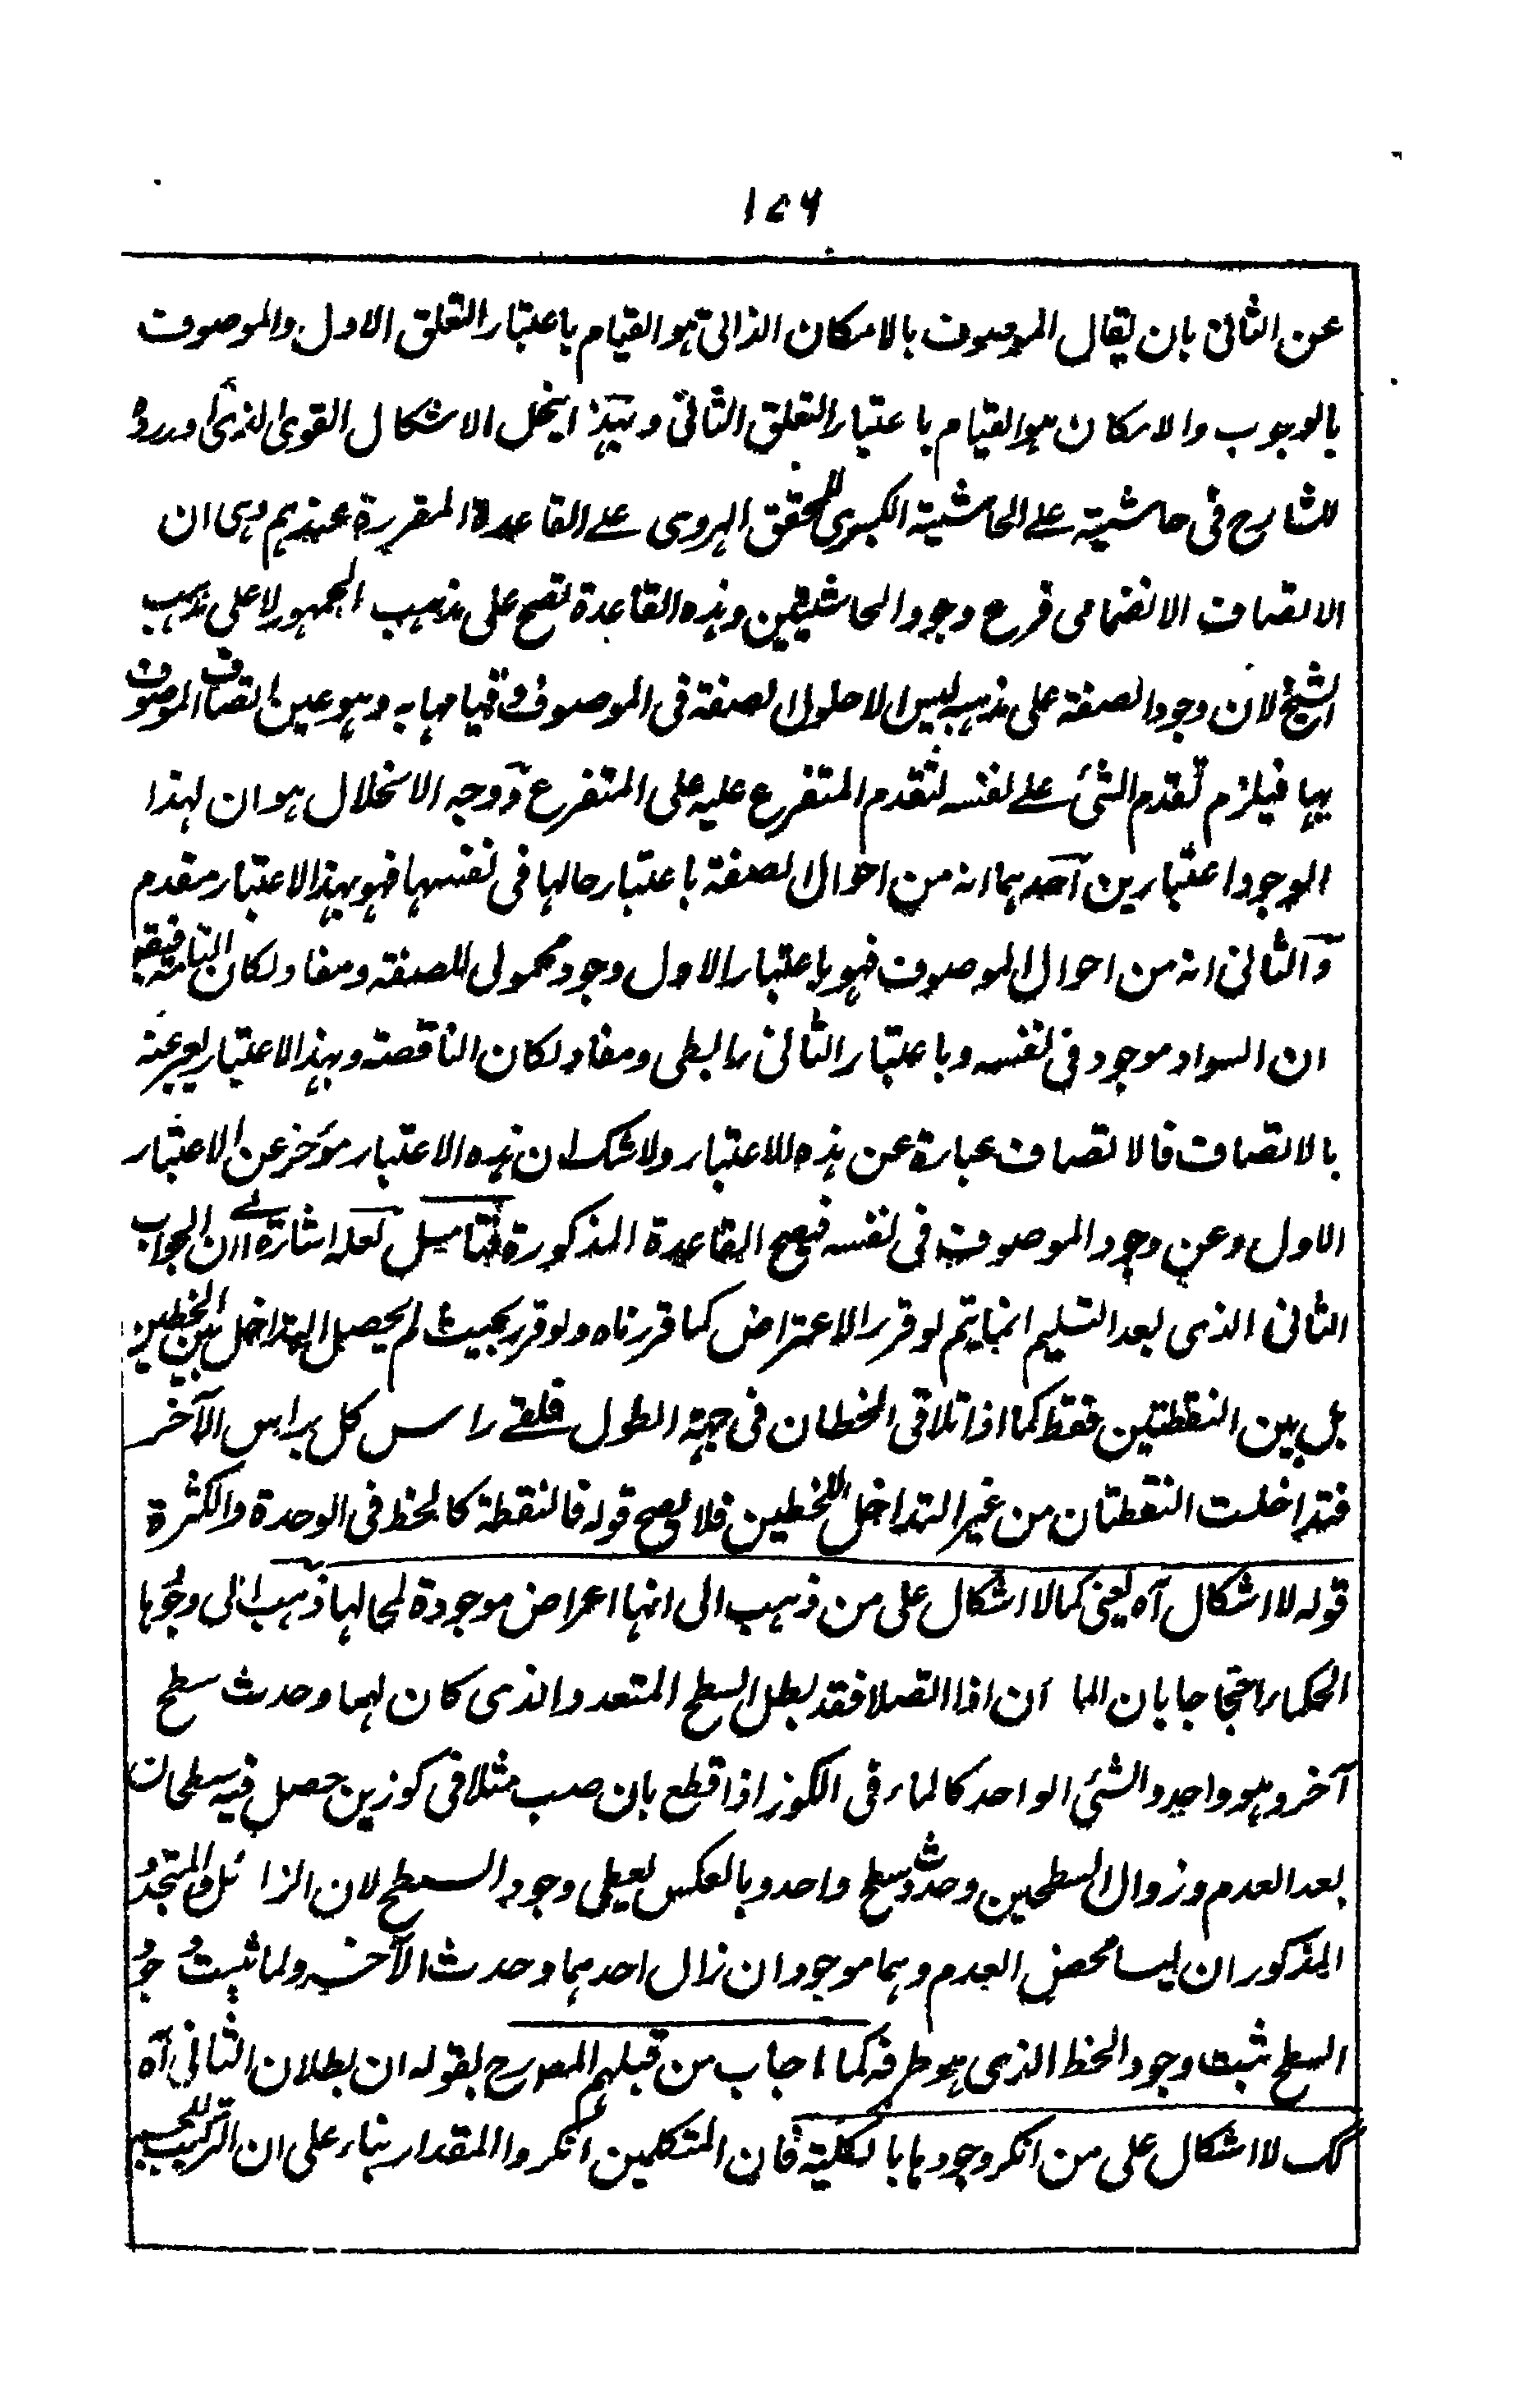 ١٤٦
عن الثانى بان يقال الموصوف بالامكان الذاتى هو القيام باعتبار التعلق الاول والموصوف
بالوجوب والامكان هو القيام باعتبار التعلق الثانى وبهذا ينحل الاشكال القوى الذى اورده
الشارح فى حاشيته على الحاشية الكبرى للمحقق الهروى على القاعدة المقررة عندهم وهى ان
الاتصاف الانضمامى فرع وجود الحاشيتين وهذه القاعدة تصح على مذهب الجمهور لا على مذهب
الشيخ لان وجود الصفة على مذهبه ليس الا حلول الصفة فى الموصوف وقيامها به وهو عين اتصاف الموصوف
بها فيلزم تقدم الشئ على نفسه لتقدم المتفرع عليه على المتفرع ووجه الانحلال هو ان لهذا
الوجود اعتبارين احدهما انه من احوال الصفة باعتبار حالها فى نفسها فهو بهذا الاعتبار مقدم
والثانى انه من احوال الموصوف فهو باعتبار الاول وجود محمولى للصفة ومفاد لكان التامة فيقال
ان السواد موجود فى نفسه وباعتبار الثانى رابطى ومفاد لكان الناقصة وبهذا الاعتبار يعبر عنه
بالاتصاف فالاتصاف عبارة عن هذه الاعتبار ولا شك ان هذه الاعتبار مؤخر عن الاعتبار
الاول وعن وجود الموصوف فى نفسه فيصح القاعدة المذكورة فتامل لعله اشارة الى ان الجواب
الثانى الذى بعد التسليم انما يتم لو قرر الاعتراض كما قررناه ولو قرر بحيث لم يحصل التداخل بين الخطين
بل بين النقطتين فقط كما اذا تلاقى الخطان فى جهة الطول فلقى راس كل براس الآخر
فتداخلت النقطتان من غير التداخل للخطين فلا يصح قوله فالنقطة كالخط فى الوحدة والكثرة
قوله لا اشكال آه يعنى كما لا اشكال على من ذهب الى انها اعراض موجودة لمحالها ذهب الى وجودها
الحكماء احتجاجا بان الما ان اذا اتصلا فقد بطل السطح المتعدد الذى كان لهما وحدث سطح
آخر وهو واحد والشئ الواحد كالماء فى الكوز اذا قطع بان صب مثلا فى كوزين حصل فيه سطحان
بعد العدم وزوال السطحين وحدوث سطح واحد وبالعكس يعطى وجود السطح لان الزائل والمتجدد
المذكوران ليسا محض العدم وهما موجودان زال احدهما وحدث الآخر ولما ثبت وجود
السطح ثبت وجود الخط الذى هو طرفه كما اجاب من قبلهم المصرح بقوله ان بطلان الثانى آه
كك لا اشكال على من انكر وجودها بالكلية فان المتكلمين انكروا المقدار بناء على ان التركيب للجسم